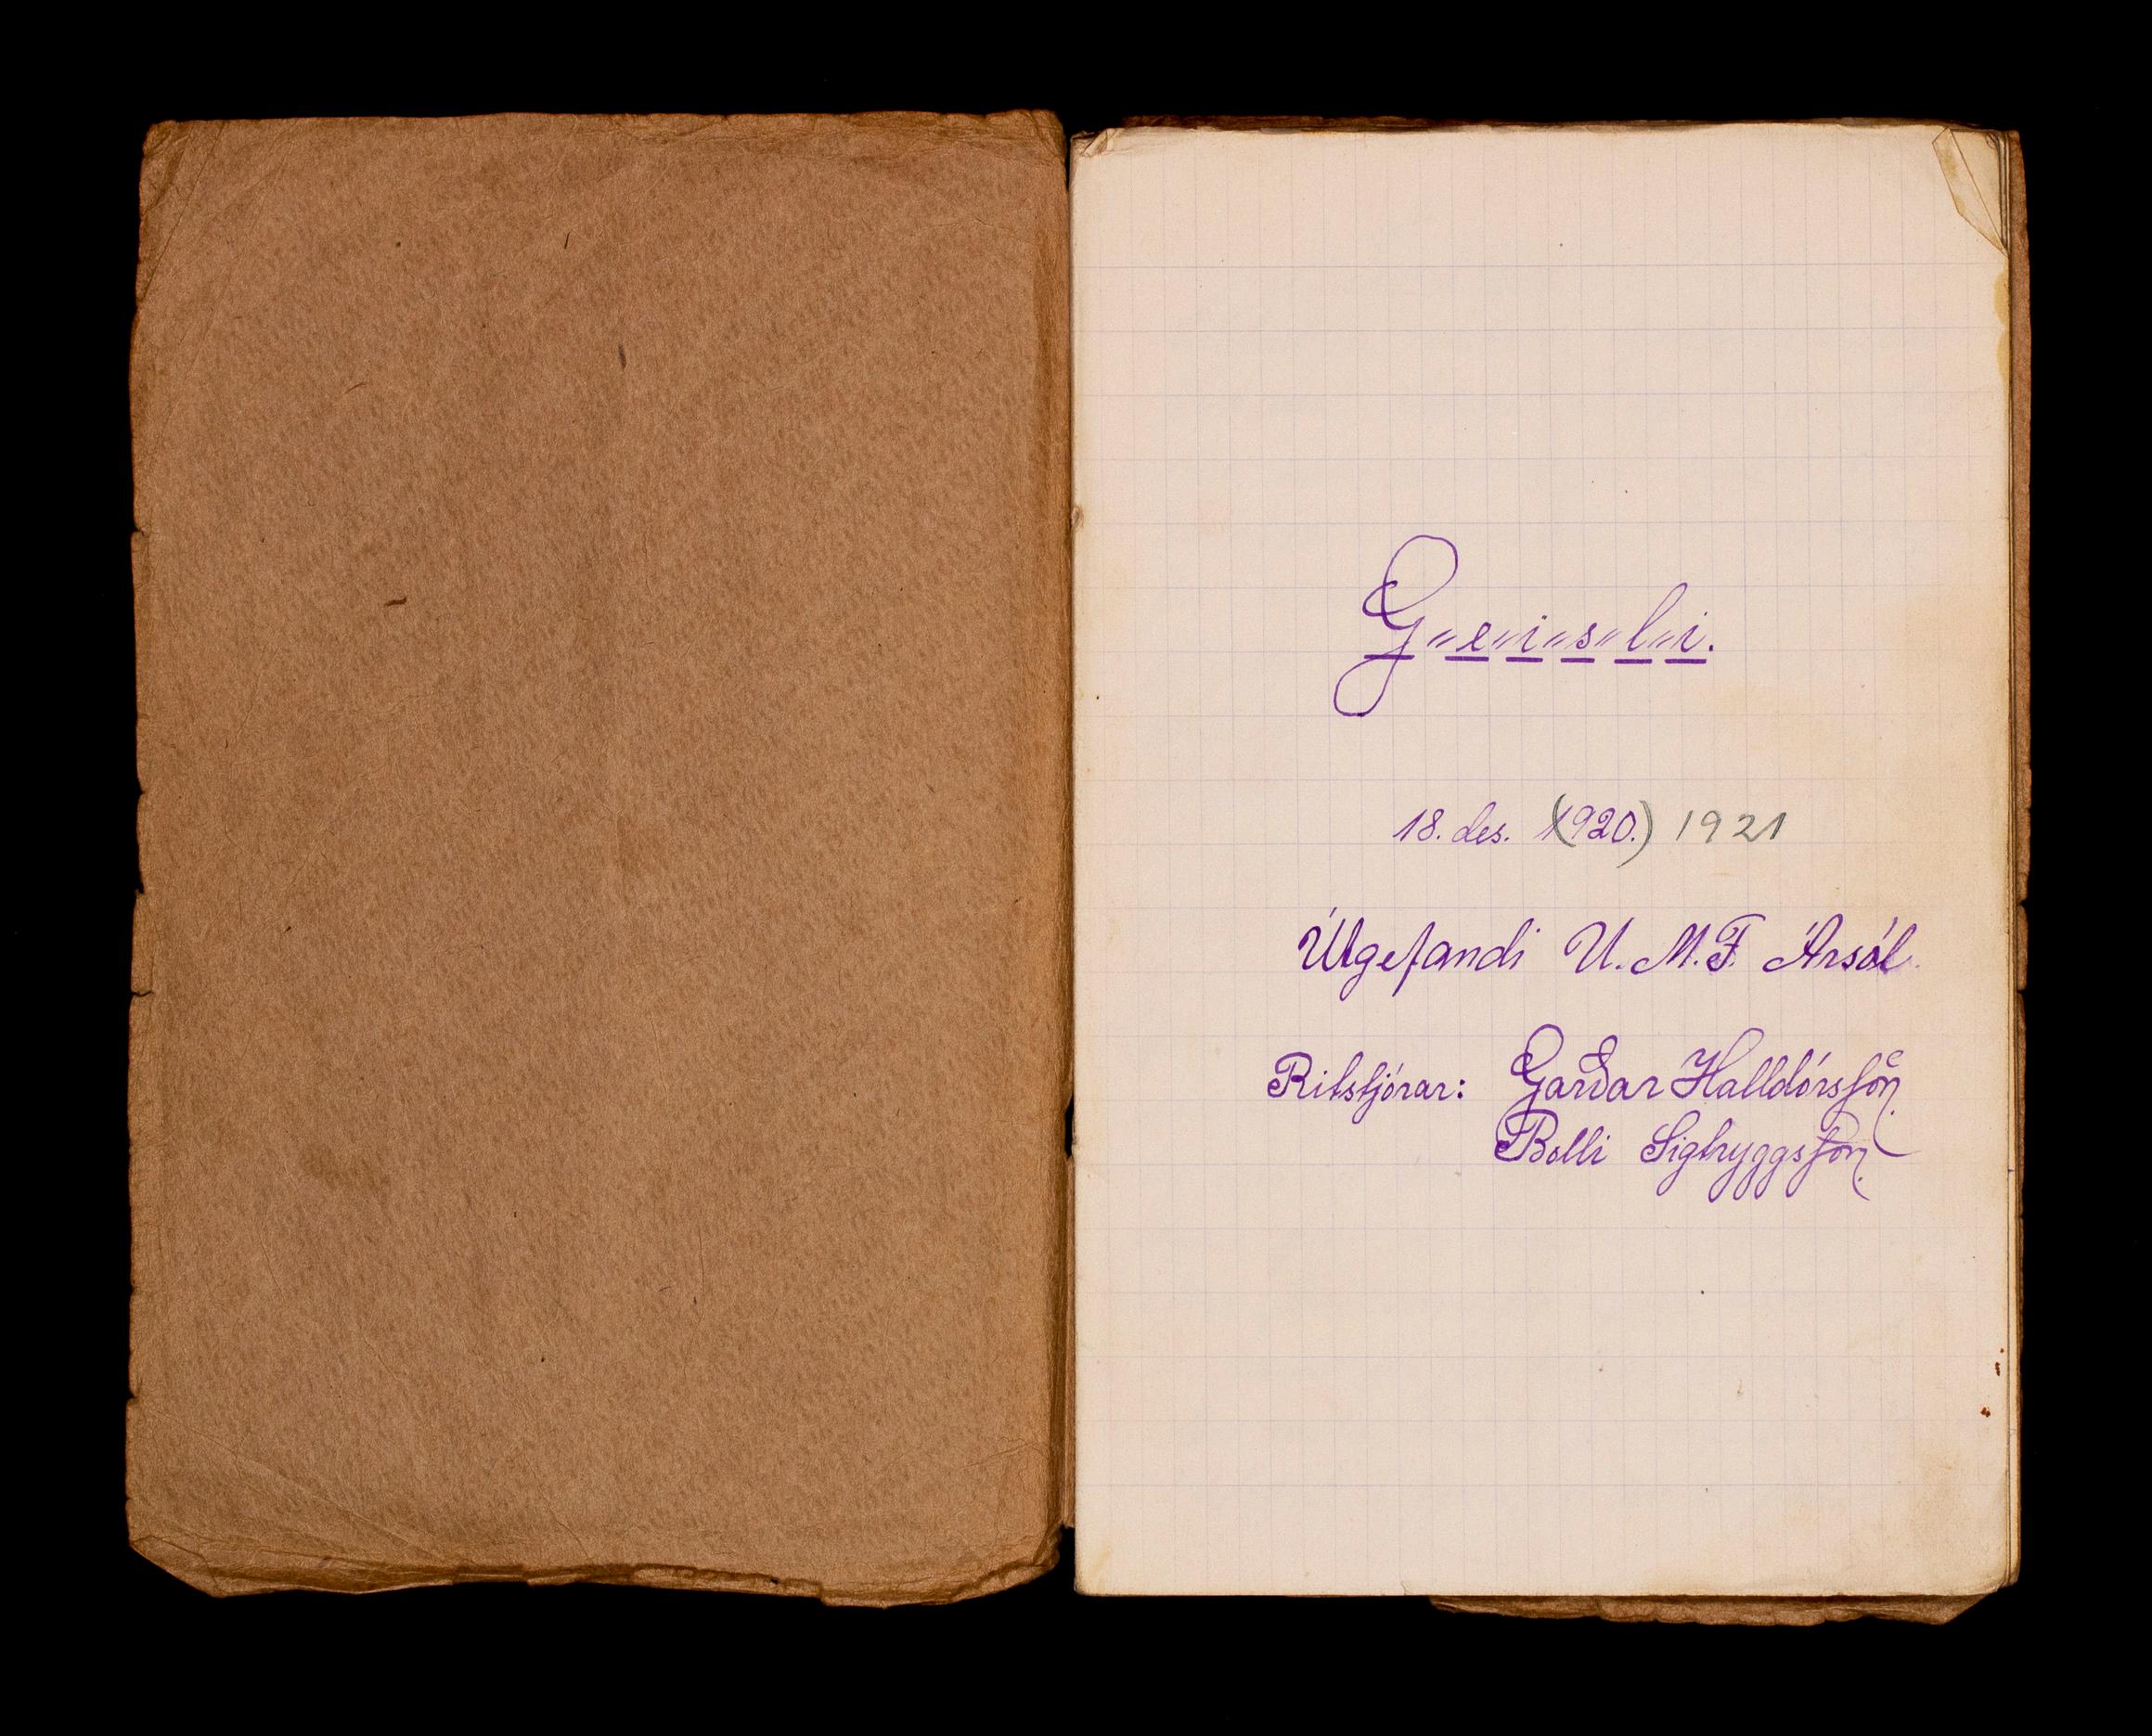 G„e„i„s„l„i.
18. des. (1920.) 1921
Útgefandi U.M.F. Ársól.
Ritstjórar: Garðar Halldórsson
Bolli Sigtryggsson